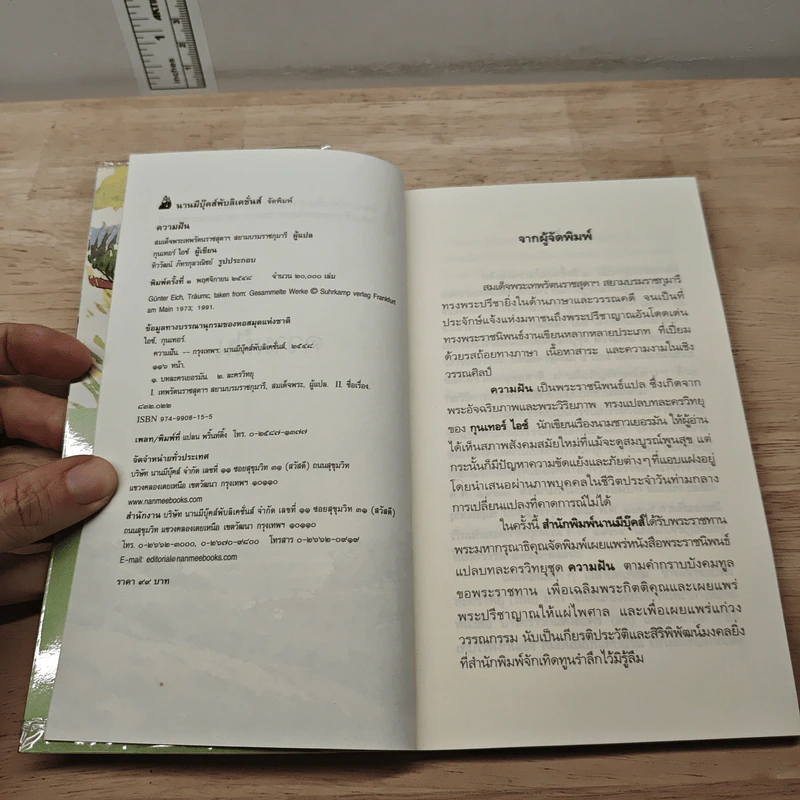 นานมีบุ๊คส์พับลิเคชั่นส์ จัดพิมพ์
ความฝัน
สมเด็จพระเทพรัตนราชสุดาฯ สยามบรมราชกุมารี ผู้แปล
กุนเทอร์ ไอช์ ผู้เขียน
ทิววัฒน์ ภัทรกุลวณิชย์ รูปประกอบ
พิมพ์ครั้งที่ ๑ พฤศจิกายน ๒๕๔๘ จำนวน ๒๐,๐๐๐ เล่ม
Günter Eich, Träume, taken from: Gesammelte Werke © Suhrkamp verlag Frankfurt
am Main 1973; 1991.
ข้อมูลทางบรรณานุกรมของหอสมุดแห่งชาติ
ไอช์, กุนเทอร์.
ความฝัน -- กรุงเทพฯ: นานมีบุ๊คส์พับลิเคชั่นส์, ๒๕๔๘.
๑๑๖ หน้า.
๑. บทละครเยอรมัน. ๒. ละครวิทยุ
I. เทพรัตนราชสุดาฯ สยามบรมราชกุมารี, สมเด็จพระ, ผู้แปล. II. ชื่อเรื่อง.
๘๓๒.๐๒๒
ISBN 974-9908-15-5
เพลท/พิมพ์ที่ แปลน พริ้นท์ติ้ง โทร. ๐-๒๕๘๗-๑๓๗๗
จัดจำหน่ายทั่วประเทศ
บริษัท นานมีบุ๊คส์ จำกัด เลขที่ ๑๑ ซอยสุขุมวิท ๓๑ (สวัสดี) ถนนสุขุมวิท
แขวงคลองเตยเหนือ เขตวัฒนา กรุงเทพฯ ๑๐๑๑๐
www.nanmeebooks.com
สำนักงาน บริษัท นานมีบุ๊คส์พับลิเคชั่นส์ จำกัด เลขที่ ๑๑ ซอยสุขุมวิท ๓๑ (สวัสดี)
ถนนสุขุมวิท แขวงคลองเตยเหนือ เขตวัฒนา กรุงเทพฯ ๑๐๑๑๐
โทร. ๐-๒๖๖๒-๓๐๐๐, ๐-๒๖๗๐-๙๘๐๐ โทรสาร ๐-๒๖๖๒-๐๙๑๙
E-mail: editorial@nanmeebooks.com
ราคา ๙๙ บาท
จากผู้จัดพิมพ์
สมเด็จพระเทพรัตนราชสุดาฯ สยามบรมราชกุมารี
ทรงพระปรีชายิ่งในด้านภาษาและวรรณคดี จนเป็นที่
ประจักษ์แจ้งแห่งมหาชนถึงพระปรีชาญาณอันโดดเด่น
ทรงพระราชนิพนธ์งานเขียนหลากหลายประเภท ที่เปี่ยม
ด้วยรสถ้อยทางภาษา เนื้อหาสาระ และความงามในเชิง
วรรณศิลป์
ความฝัน เป็นพระราชนิพนธ์แปล ซึ่งเกิดจาก
พระอัจฉริยภาพและพระวิริยภาพ ทรงแปลบทละครวิทยุ
ของ กุนเทอร์ ไอช์ นักเขียนเรืองนามชาวเยอรมัน ให้ผู้อ่าน
ได้เห็นสภาพสังคมสมัยใหม่ที่แม้จะดูสมบูรณ์พูนสุข แต่
กระนั้นก็มีปัญหาความขัดแย้งและภัยต่างๆ ที่แอบแฝงอยู่
โดยนำเสนอผ่านภาพบุคคลในชีวิตประจำวันท่ามกลาง
การเปลี่ยนแปลงที่คาดการณ์ไม่ได้
ในครั้งนี้ สำนักพิมพ์นานมีบุ๊คส์ได้รับพระราชทาน
พระมหากรุณาธิคุณจัดพิมพ์เผยแพร่หนังสือพระราชนิพนธ์
แปลบทละครวิทยุชุด ความฝัน ตามคำกราบบังคมทูล
ขอพระราชทาน เพื่อเฉลิมพระกิตติคุณและเผยแพร่
พระปรีชาญาณให้แผ่ไพศาล และเพื่อเผยแพร่แก่วง
วรรณกรรม นับเป็นเกียรติประวัติและสิริพิพัฒน์มงคลยิ่ง
ที่สำนักพิมพ์จักเทิดทูนรำลึกไว้มิรู้ลืม